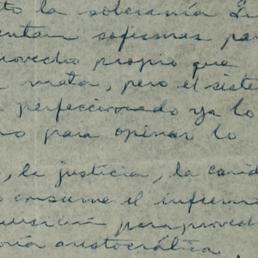 to la soberanía
entan sofismas pa
rovecho propio que
mata, pero el siste
perfeccionado ya lo
no para opinar lo
, la justicia, la carid
consume el infierno
para proved
oria aristocrática